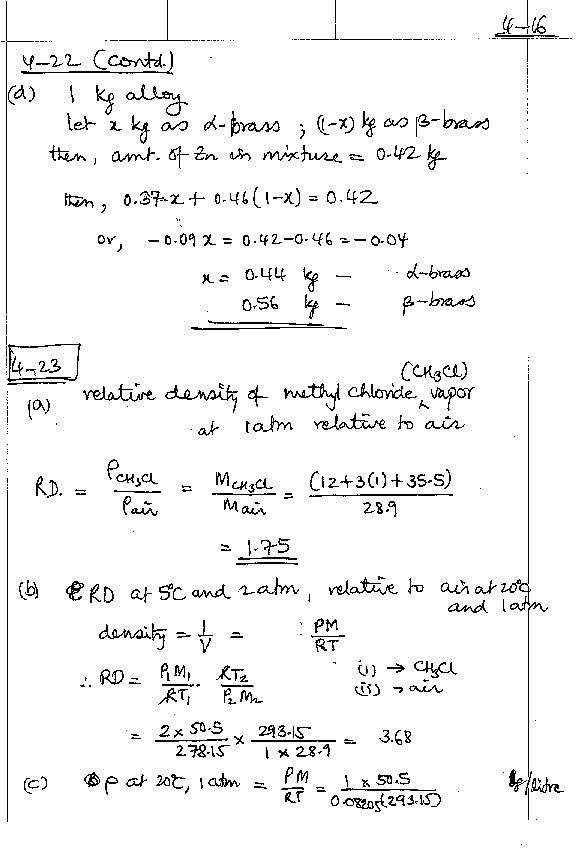 4-16
4-22 (contd.)
(d) 1 kg alloy
let x kg as α-brass ; (1-x) kg as β-brass
then, amt. of Zn in mixture = 0.42 kg
then, 0.37x + 0.46(1-x) = 0.42
or, -0.09x = 0.42-0.46 = -0.04
x = 0.44 kg - α-brass
0.56 kg - β-brass
4-23
(CH3Cl)
(a) relative density of methyl chloride ^ vapor
at 1 atm relative to air
R.D. = ρCH3Cl / ρair = MCH3Cl / Mair = (12+3(1)+35.5) / 28.9
= 1.75
(b) RD at 5°C and 2 atm, relative to air at 20°C
and 1 atm
density = 1/V = PM/RT
∴ RD = P1M1/RT1 · RT2/P2M2 (i) → CH3Cl
(ii) → air
= 2 x 50.5 / 278.15 x 293.15 / 1 x 28.9 = 3.68
(c) ρ at 20°C, 1 atm = PM/RT = 1 x 50.5 / 0.08205(293.15) kg/litre